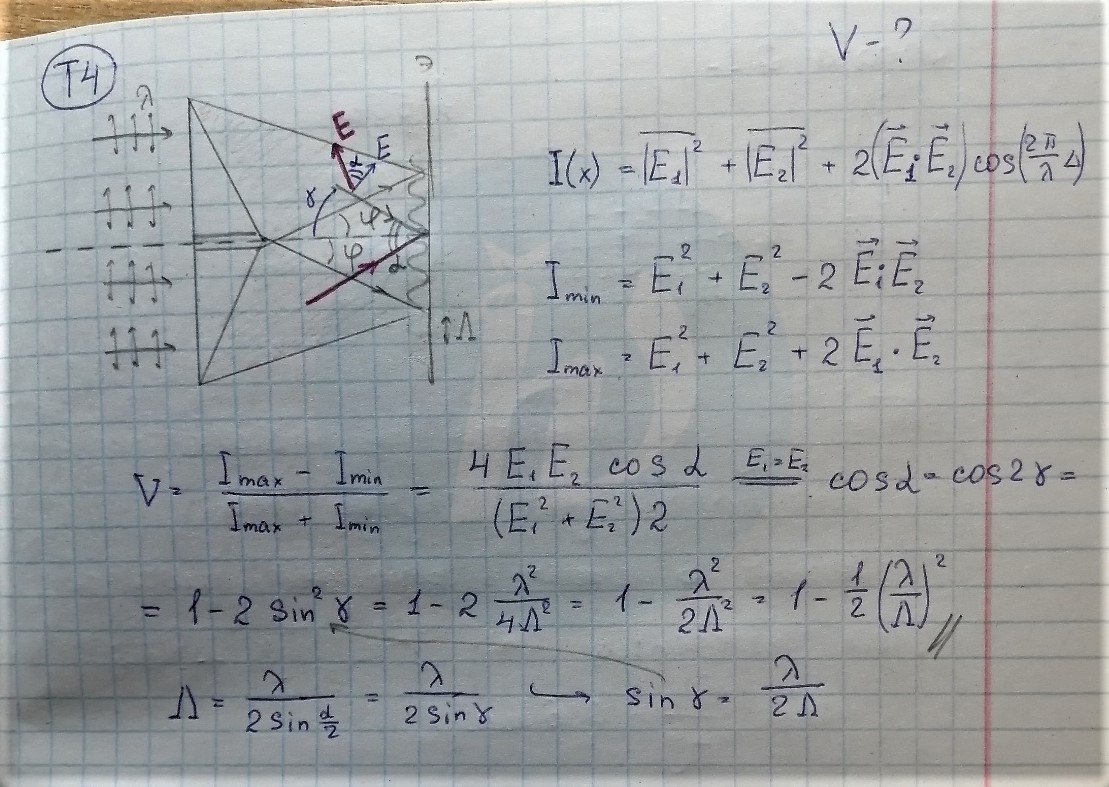 T4
V - ?
λ
Э
E
E
α
γ
φ
φ
α
Λ
I(x) = \overline{|E₁|²} + \overline{|E₂|²} + 2(\vec{E}₁·\vec{E}₂) cos(2π/λ Δ)
I_min = E₁² + E₂² - 2 \vec{E}₁·\vec{E}₂
I_max = E₁² + E₂² + 2 \vec{E}₁·\vec{E}₂
V = (I_max - I_min)/(I_max + I_min) = (4 E₁ E₂ cos α)/((E₁² + E₂²)2) =^{E₁=E₂} cos α = cos 2γ =
= 1 - 2 sin² γ = 1 - 2 λ²/4Λ² = 1 - λ²/2Λ² = 1 - 1/2 (λ/Λ)² //
Λ = λ/(2 sin α/2) = λ/(2 sin γ) → sin γ = λ/2Λ